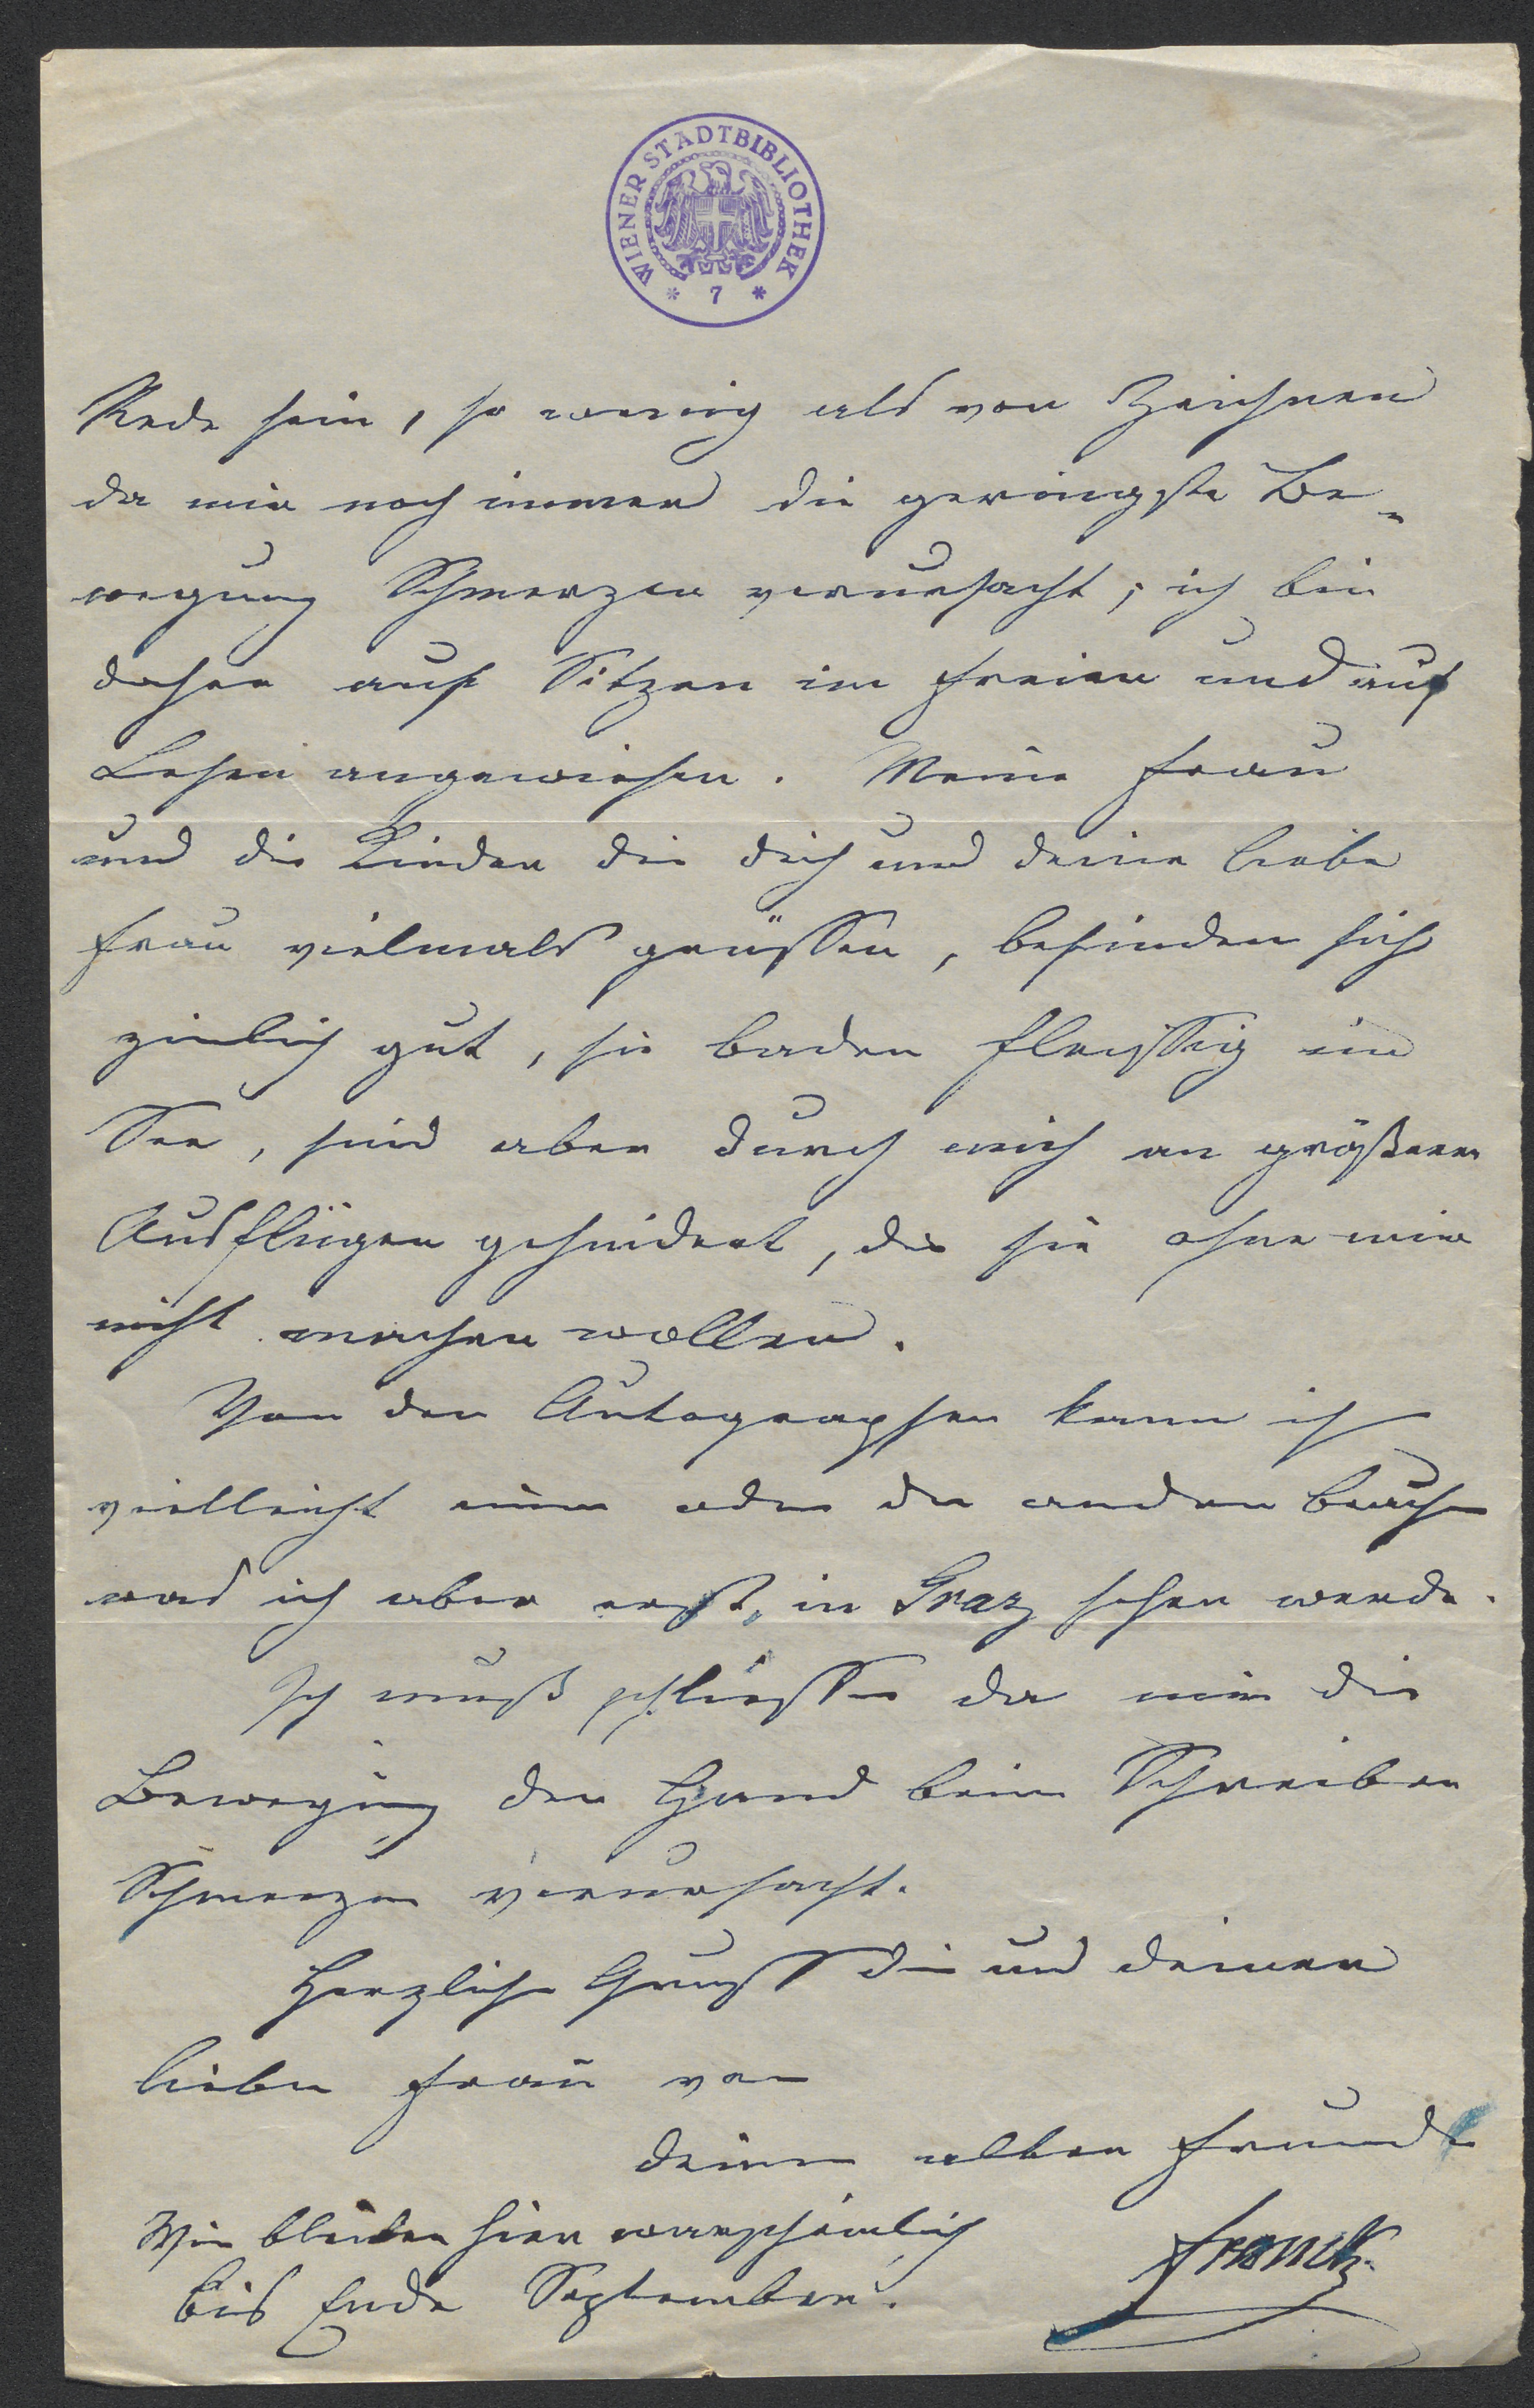 WIENER STADTBIBLIOTHEK
* 7 *
Rede sein, so wenig als von Zeichnen
da mir noch immer die geringste Be-
wegung Schmerzen verursacht; ich bin
daher aufs Sitzen im Freien und auf
Lesen angewiesen. Meine Frau
und die Kinder die dich und deine liebe
Frau vielmals grüssen, befinden sich
zimlich gut, sie baden fleissig im
See, sind aber durch mich an größeren
Ausflügen gehindert, die sie ohne mir
nicht machen wollen.
Von den Autographen kann ich
vielleicht einen oder den andern brauchen
was ich aber erst in Graz sehen werde.
Ich muß schliessen da mir die
Bewegung der Hand beim Schreiben
Schmerzen verursacht.
Herzliche Grusse dir und deiner
lieben Frau von
deinem alten Freunde
Wir bleiben hier warscheinlich
bis Ende September.
Franck